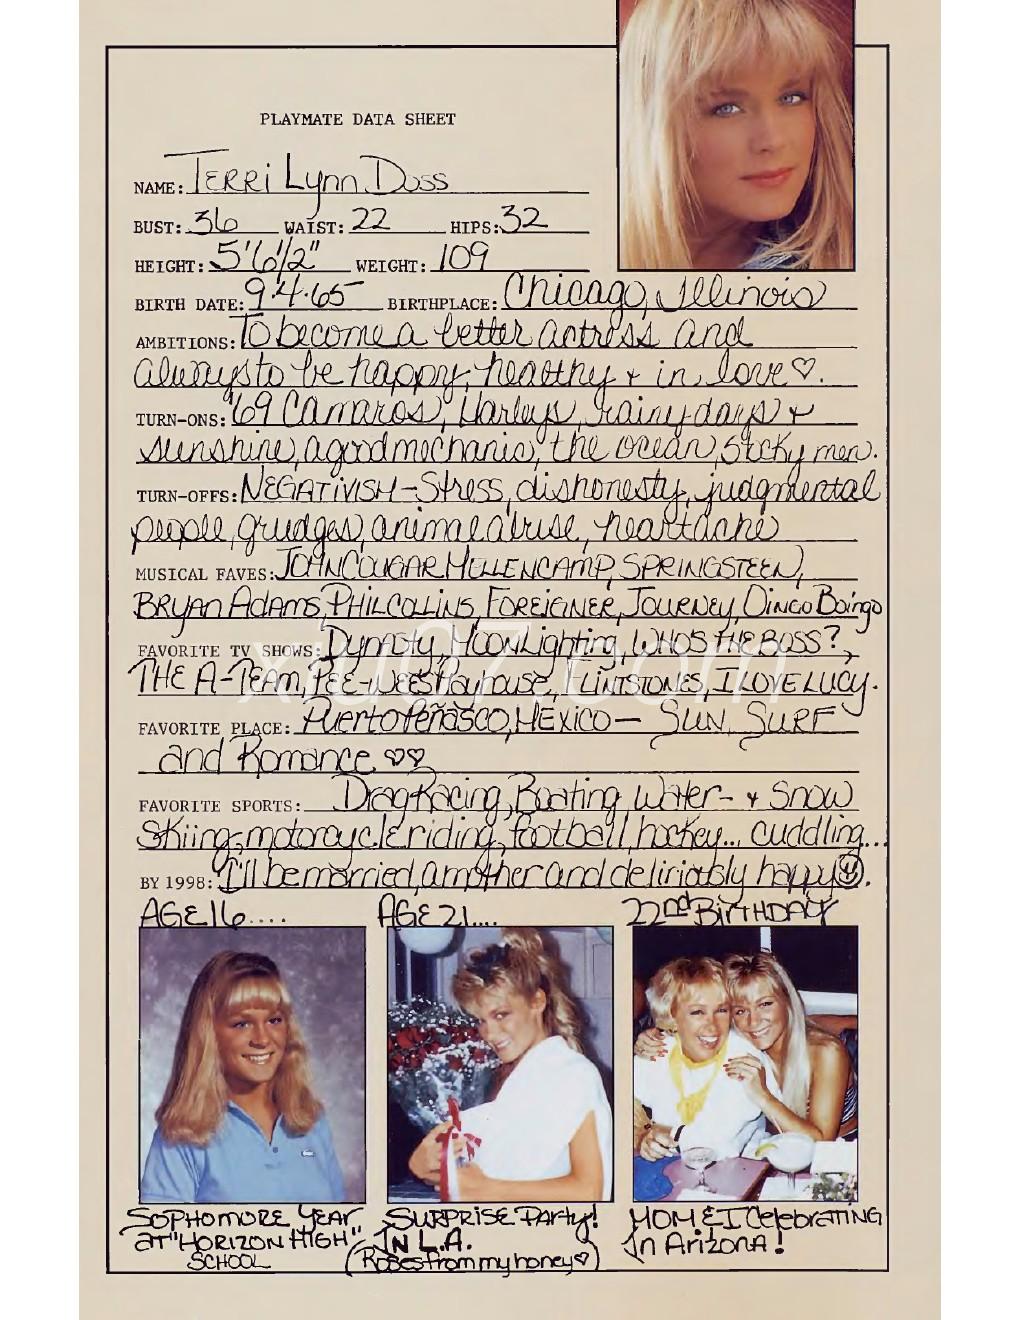 PLAYMATE DATA SHEET
NAME: TERRi Lynn Doss
BUST: 36 WAIST: 22 HIPS: 32
HEIGHT: 5'6 1/2" WEIGHT: 109
BIRTH DATE: 9·4·65 BIRTHPLACE: Chicago, Illinois
AMBITIONS: To become a better actress and
always to be happy, healthy & in love ♡.
TURN-ONS: '69 Camaros, Harleys, rainy days &
sunshine, a good mechanic, the ocean, stocky men.
TURN-OFFS: NEGATIVISM-Stress, dishonesty, judgmental
people, grudges, animal abuse, heartache
MUSICAL FAVES: JOHN COUGAR MELLENCAMP, SPRINGSTEEN,
BRYAN ADAMS, PHIL COLLINS, FOREIGNER, JOURNEY, OINGO BOINGO
FAVORITE TV SHOWS: Dynasty, MoonLighting, WHO'S THE BOSS?,
xiu07.com
THE A-TEAM, PEE-WEE'S Playhouse, FLINTSTONES, I LOVE LUCY.
FAVORITE PLACE: Puerto Peñasco, MEXICO — SUN, SURF
and Romance ♡♡
FAVORITE SPORTS: Drag Racing, Boating, Water- & Snow
Skiing, motorcycle riding, football, hockey... cuddling...
BY 1998: I'll be married, a mother and deliriously happy ☺.
AGE 16.... AGE 21.... 22nd BIRTHDAY
SOPHOMORE YEAR
AT "HORIZON HIGH"
SCHOOL
SURPRISE Party!
IN L.A.
(Roses from my honey ♡)
MOM & I Celebrating
in Arizona!